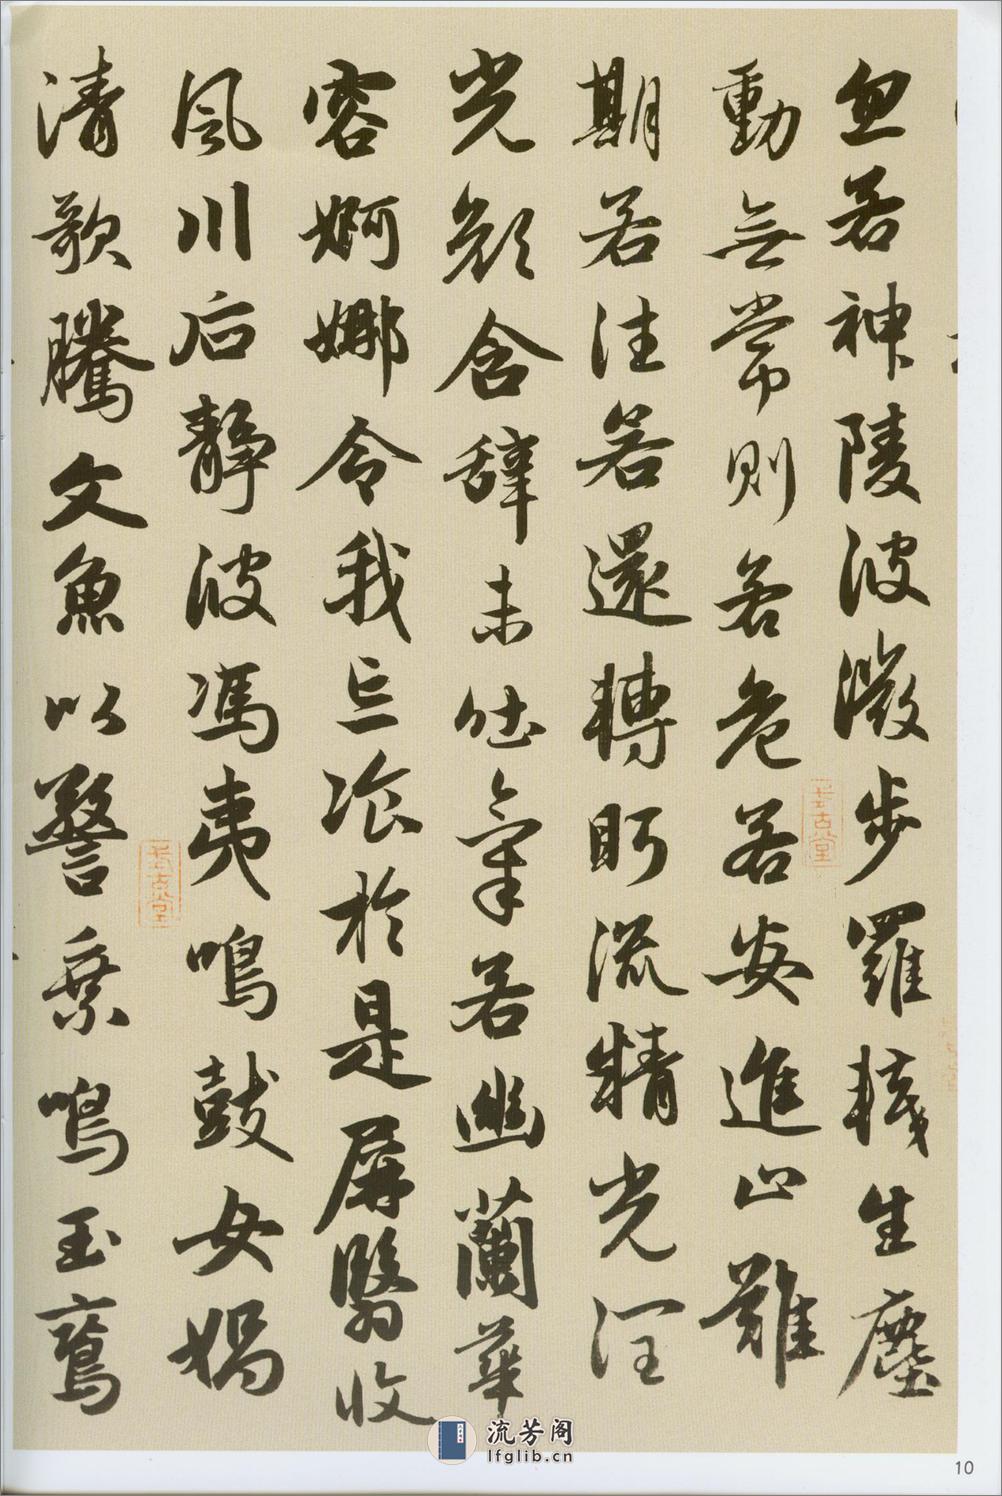 忽若神陵波微步羅襪生塵
動無常則若危若安進止難
期若往若還轉眄流精光潤
光顏含辭未吐氣若幽蘭華
容婀娜令我忘飡於是屏翳收
風川后靜波馮夷鳴鼓女媧
清歌騰文魚以警乘鳴玉鸞
流芳阁
lfglib.cn
10